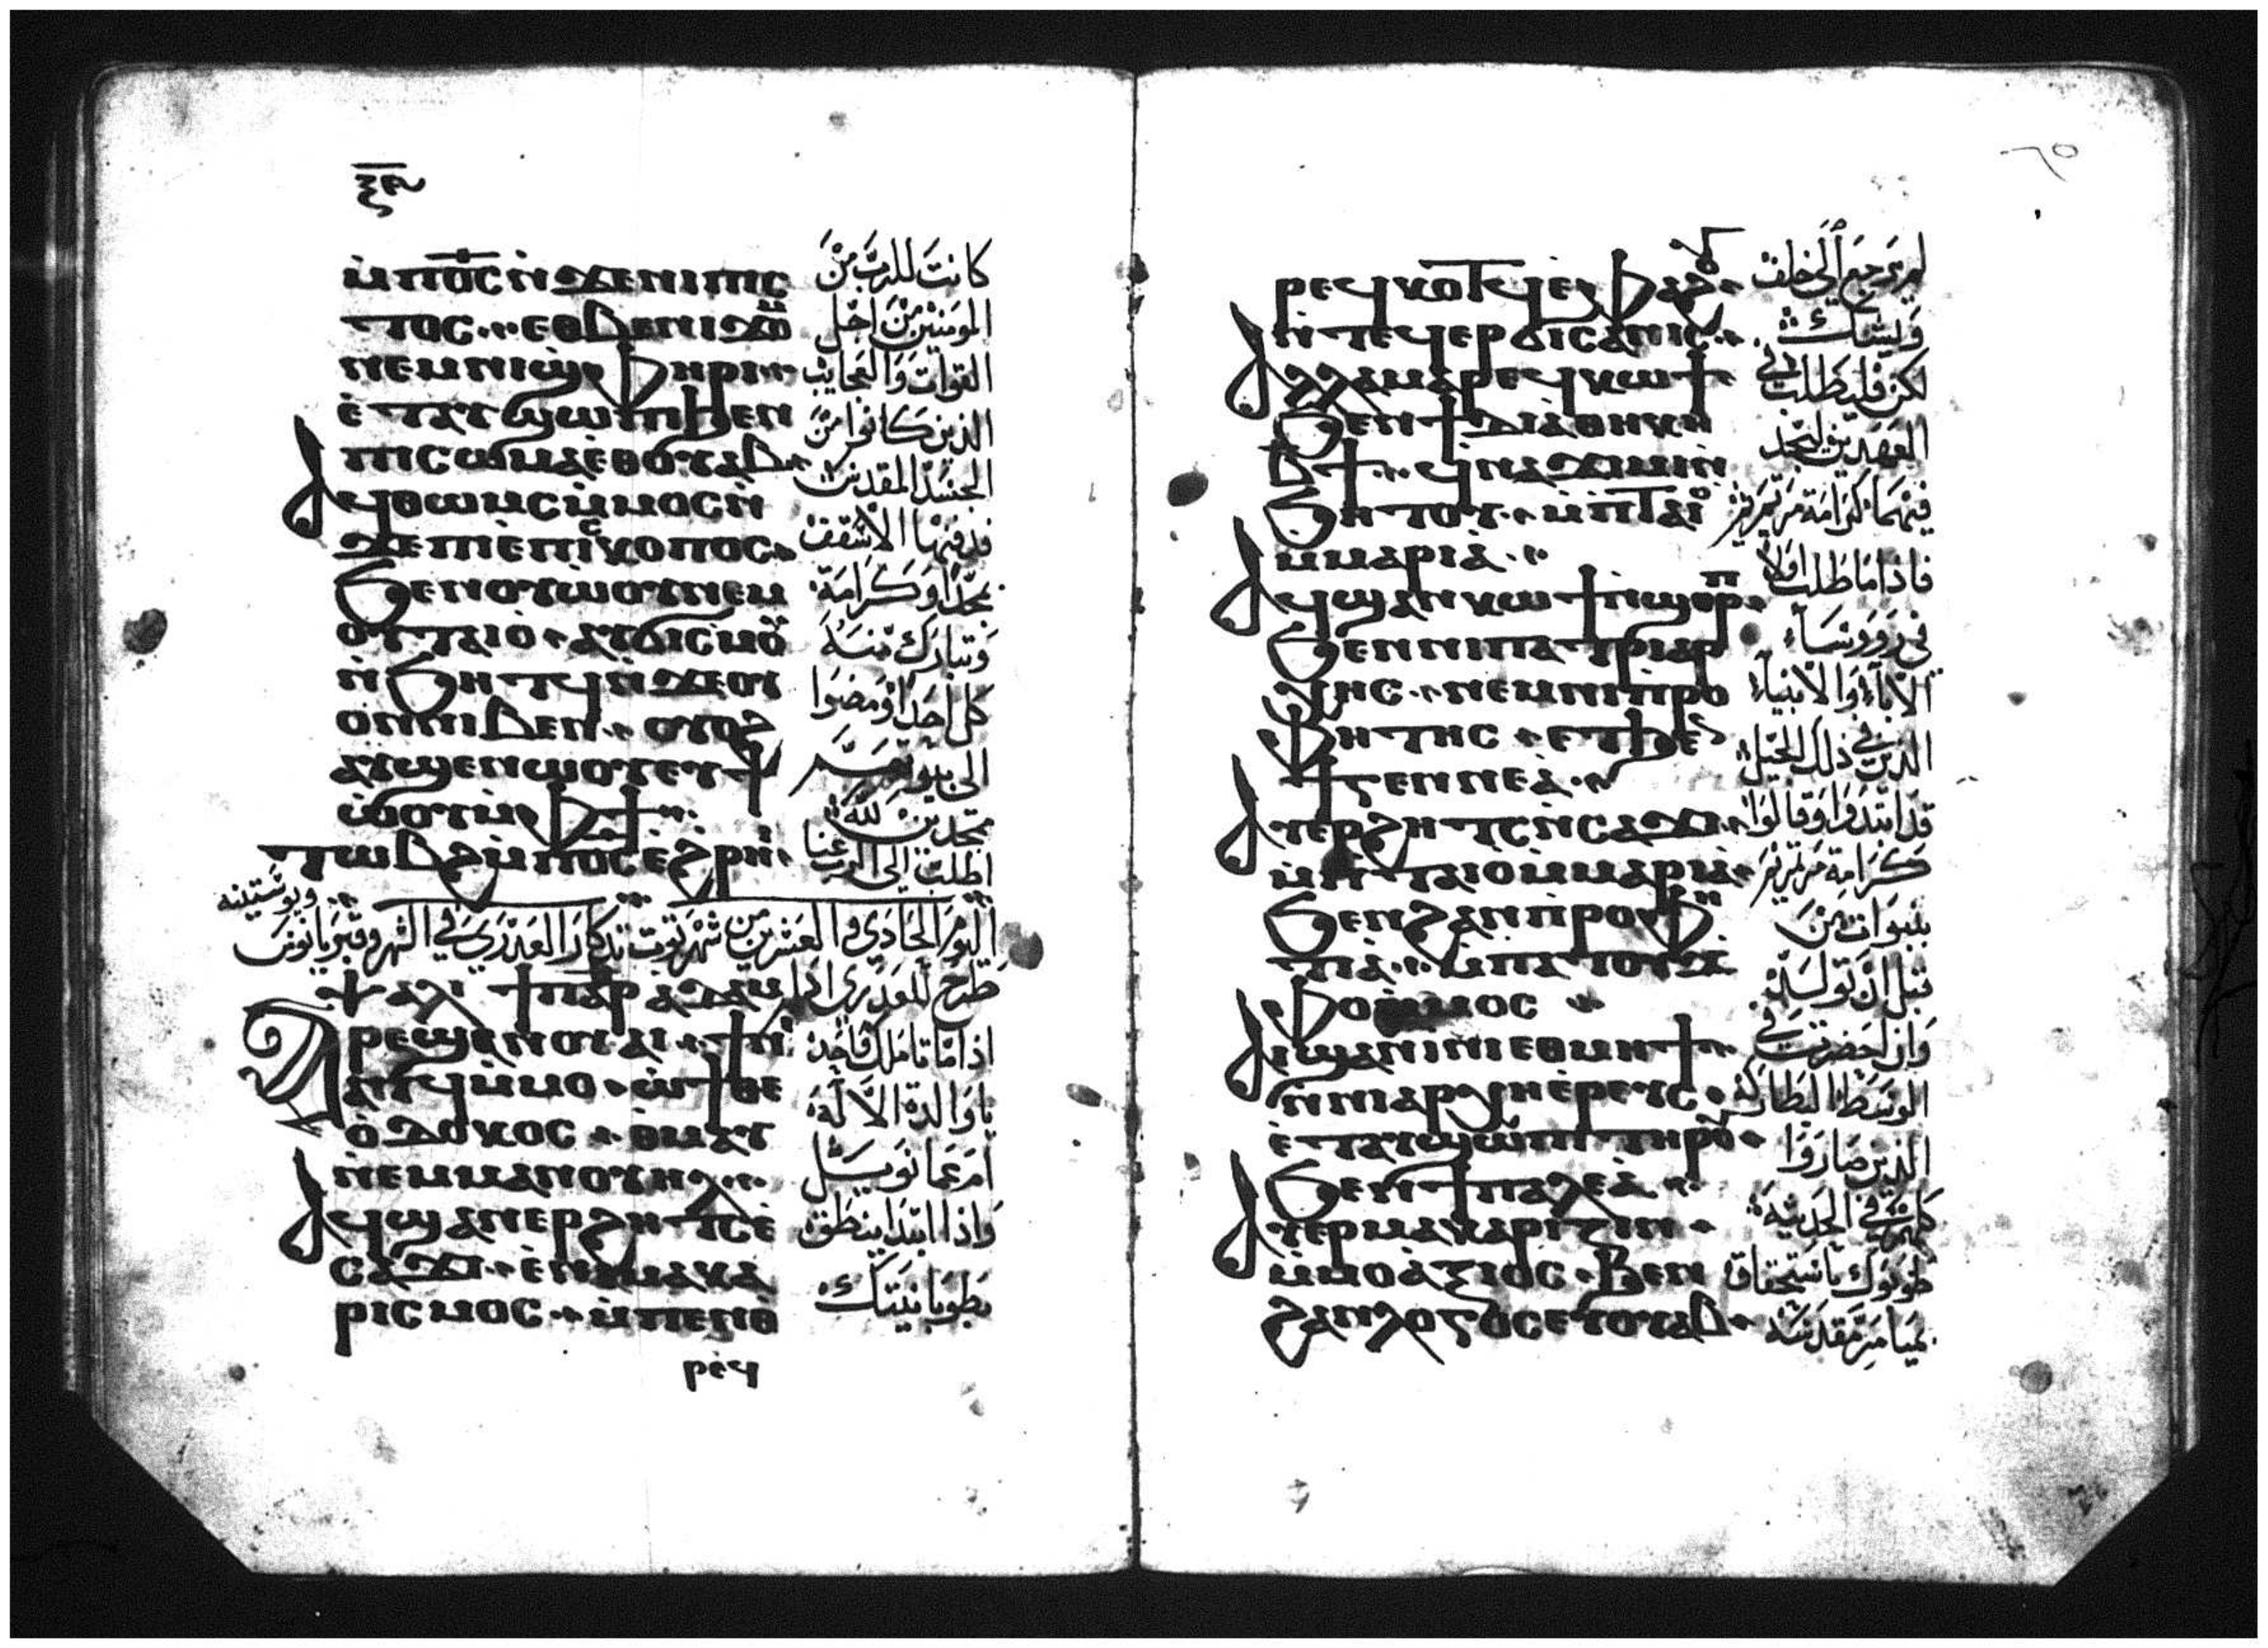 ⲝⲉ
ⲙ̀ⲡⲟ̅ⲥ̅ ⲛ̀ϫⲉⲛⲓⲡⲓⲥ
ⲧⲟⲥ ⲉⲑⲃⲉⲛⲓϫⲟⲙ
ⲛⲉⲙⲛⲓϣⲫⲏⲣⲓ
ⲉ̀ⲧⲁⲩϣⲱⲡⲓϧⲉⲛ
ⲡⲓⲥⲱⲙⲁⲉ̀ⲑⲟⲩⲁⲃ
ⲁϥⲑⲱⲙⲥⲙ̀ⲙⲟⲥⲛ̀
ϫⲉⲡⲓⲉ̀ⲡⲓⲥⲕⲟⲡⲟⲥ
ϧⲉⲛⲟⲩⲱ̀ⲟⲩⲛⲉⲙ
ⲟⲩⲧⲁⲓⲟ ⲁⲩϭⲓⲥⲙⲟⲩ
ⲛ̀ϧⲏⲧϥⲛ̀ϫⲉⲟⲩ
ⲟⲛⲛⲓⲃⲉⲛ ⲟⲩⲟϩ
ⲁⲩϣⲉⲛⲱⲟⲩⲉⲩϯ
ⲱ̀ⲟⲩⲙ̀ⲫϯ
ⲧⲱⲃϩⲙ̀ⲡⲟⲥⲉ̀ϩⲣⲏⲓ
كانت للرب من
المومنين من اجل
القوات والعجايب
الذين كانوا من
الجسد المقدس
فدفنها الاسقف
بمجد وكرامة
وتبارك منه
كل احد ومضوا
الى بيوتهم
ممجدين لله
اطلب الى الرب عنا
اليوم الحادي والعشرين من شهر توت تذكار العدري في الشهر وقبريانوس
ويوستينه
ⲯⲁⲗⲓ ϯⲡⲁⲣ ⲁⲇⲁⲙ طرح للعدري ادام
ⲁⲣⲉϣⲁⲛⲟⲩⲁⲓ ϯⲛ̀
ⲁⲧϥⲙ̀ⲙⲟ ⲱ̀ϯⲑⲉ
ⲟ̀ⲇⲟⲕⲟⲥ ⲑⲙⲁⲩ
ⲛ̀ⲉⲙⲙⲁⲛⲟⲩⲏⲗ
ⲁϥϣⲁⲛⲉⲣϩⲏⲧⲥⲉ̀
ⲥⲁϫⲓ ⲉ̀ⲛⲓⲙⲁⲕⲁ
ⲣⲓⲥⲙⲟⲥ ⲙ̀ⲡⲉⲛⲑ
ⲣⲉϥ
اذا ما تاملك فاحد
يا والدة الاله
ام عمانوييل
واذا ابتدا ينطق
بطوبانيتك
٦٥
ⲣⲉϥⲕⲟⲧϥⲉ̀ⲫⲁϩⲟⲩ
ⲛ̀ⲧⲉϥⲉⲣⲇⲓⲥⲁⲛⲓⲥ
ⲁⲗⲗⲁⲙⲁⲣⲉϥⲕⲱϯ
ϧⲉⲛϯⲇⲓⲁ̀ⲑⲏⲕⲏ
ⲃ̅ϯ ϥⲛⲁϫⲓⲙⲓⲛ̀
ϧⲏⲧⲟⲩ ⲙ̀ⲡ̀ⲧⲁⲓⲟ
ⲙ̀ⲙⲁⲣⲓⲁ̀
ⲁϥϣⲁⲛⲕⲱϯⲛ̀ϣⲟⲣⲡ
ϧⲉⲛⲛⲓⲡⲁⲧⲣⲓⲁⲣ
ⲭⲏⲥ ⲛⲉⲙⲛⲓⲡ̀ⲣⲟ
ⲫⲏⲧⲏⲥ ⲉⲧϧⲉⲛ
ϯⲅⲉⲛⲛⲉⲁ̀
ⲁⲩⲉⲣϩⲏⲧⲥⲛ̀ⲥⲁϫⲓ
ⲙ̀ⲡ̀ⲧⲁⲓⲟⲙ̀ⲙⲁⲣⲓⲁ̀
ϧⲉⲛϩⲁⲛⲡ̀ⲣⲟⲫⲏ
ⲧⲓⲁ̀ ⲙ̀ⲡⲁⲧⲟⲩϫ
ⲫⲟ ⲙ̀ⲙⲟⲥ
ⲁⲩϣⲁⲛⲓⲙⲓⲉⲑⲙⲏϯ
ⲛ̀ⲛⲓⲁⲣⲭⲏⲉ̀ⲣⲉⲩⲥ
ⲉ̀ⲧⲁⲩϣⲱⲡⲓⲧⲏⲣⲟⲩ
ϧⲉⲛϯⲡⲁⲗⲉⲁ̀
ⲁⲩⲉⲣⲙⲁⲕⲁⲣⲓⲍⲓⲛ
ⲙ̀ⲙⲟⲁ̀ⲝⲓⲟⲥ ϧⲉⲛ
ϩⲁⲛⲗⲟⲅⲟⲥⲉⲩⲟⲩⲁⲃ
ليرجع الى خلف
وليشك
لكن فليطلب في
العهدين ليجد
فيهما كرامة مريم
فاذا ما طلب اولا
في روساء
الاباء والانبياء
الذين في ذلك الجيل
قد ابتدوا وقالوا
كرامة مريم
بنبوات من
قبل ان تولد
وان احضرت في
الوسط البطاركة
الذين صاروا
كلهم في الحديثة
طوبوك باستحقاق
بميامر مقدسة